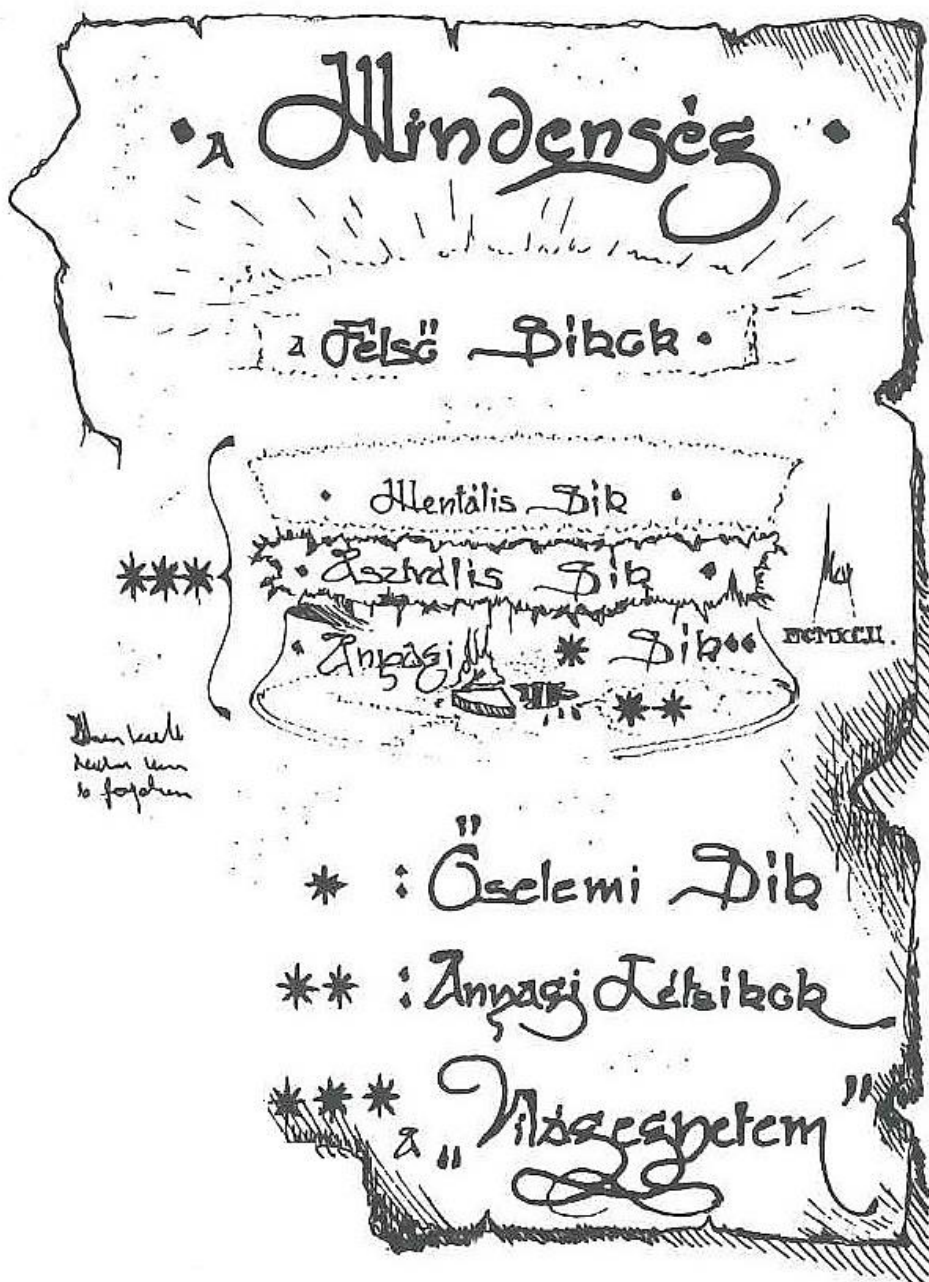 A Mindenség
a Felső Síkok
Mentális Sík
***
Asztrális Sík
Anyagi * Sík
**
* : Őselemi Sík
** : Anyagi Létsíkok
*** a „Világegyetem”